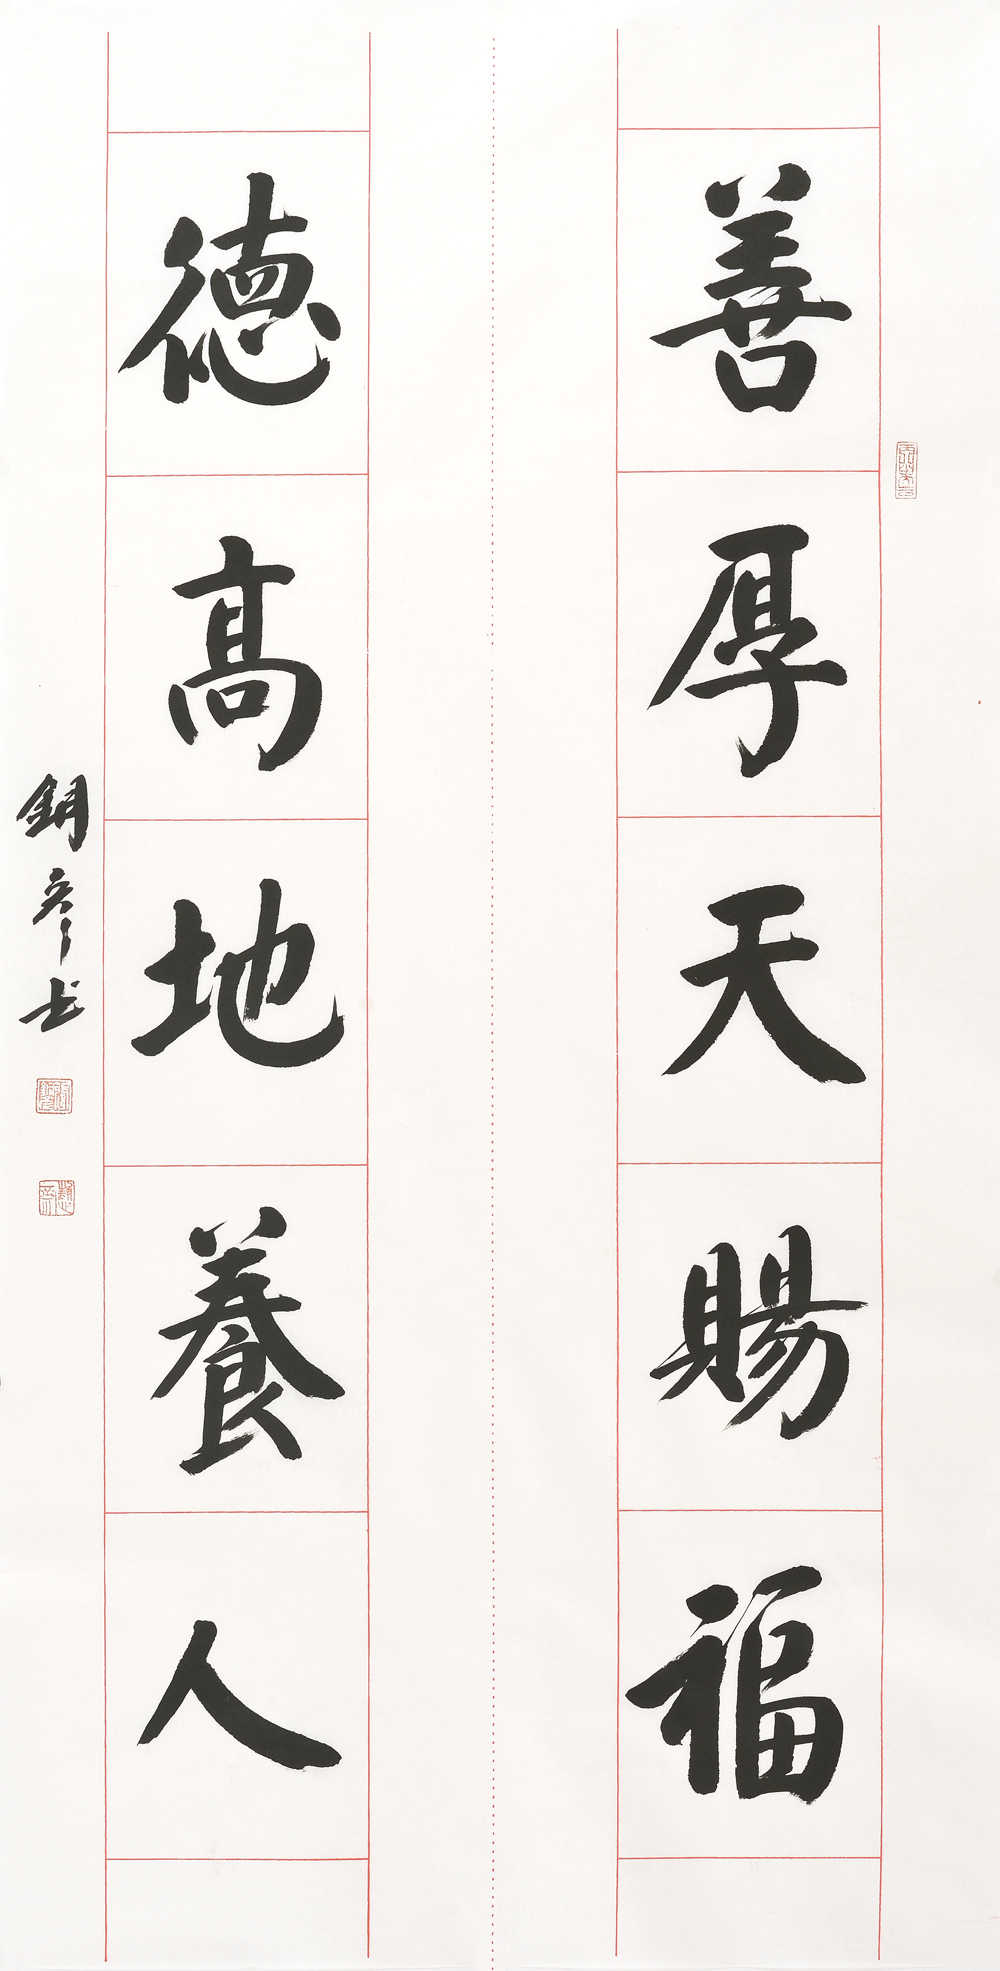 善厚天賜福
德高地養人
銅彥书